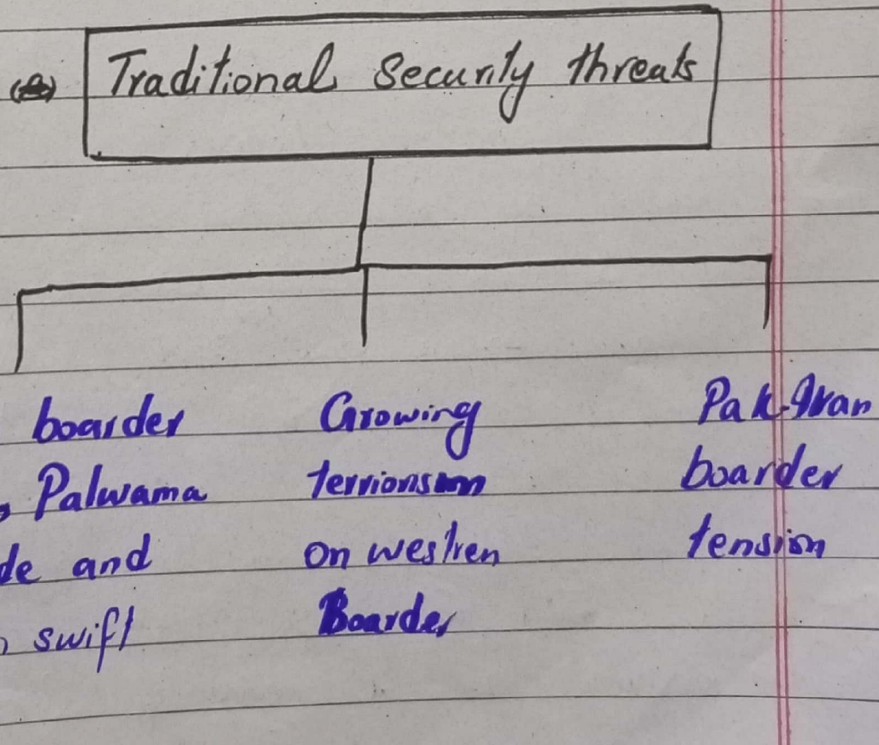 Traditional Security threats
boarder
Palwama
de and
swift
Growing
terrionsm
on westren
Boarder
Pak-Iran
boarder
tension